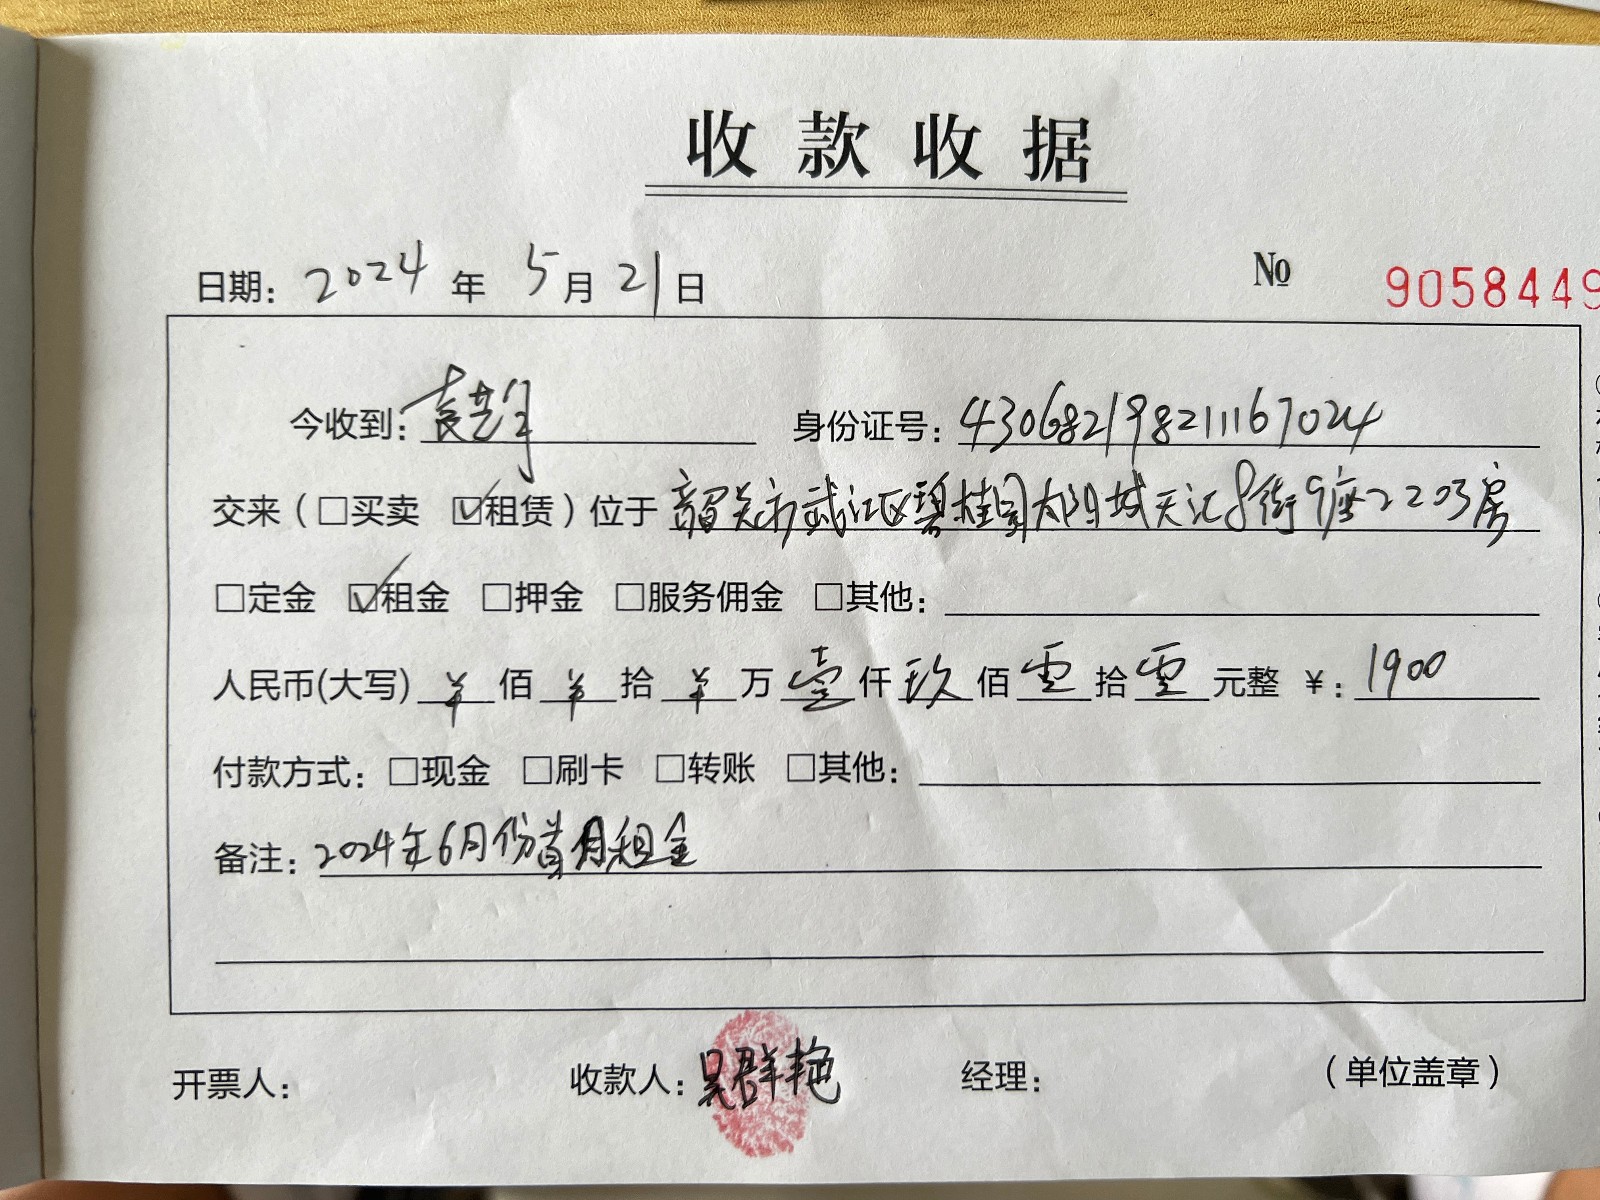 收款收据
日期：2024年5月21日 № 9058449
今收到：袁 身份证号：430682198211167024
交来（□买卖 ☑租赁）位于 韶关市武江区碧桂园太阳城天汇8街9座2203房
□定金 ☑租金 □押金 □服务佣金 □其他：
人民币(大写) ¥ 佰 ¥ 拾 ¥ 万 壹 仟 玖 佰 零 拾 零 元整 ¥：1900
付款方式：□现金 □刷卡 □转账 □其他：
备注：2024年6月份首月租金
开票人： 收款人：吴群艳 经理： （单位盖章）